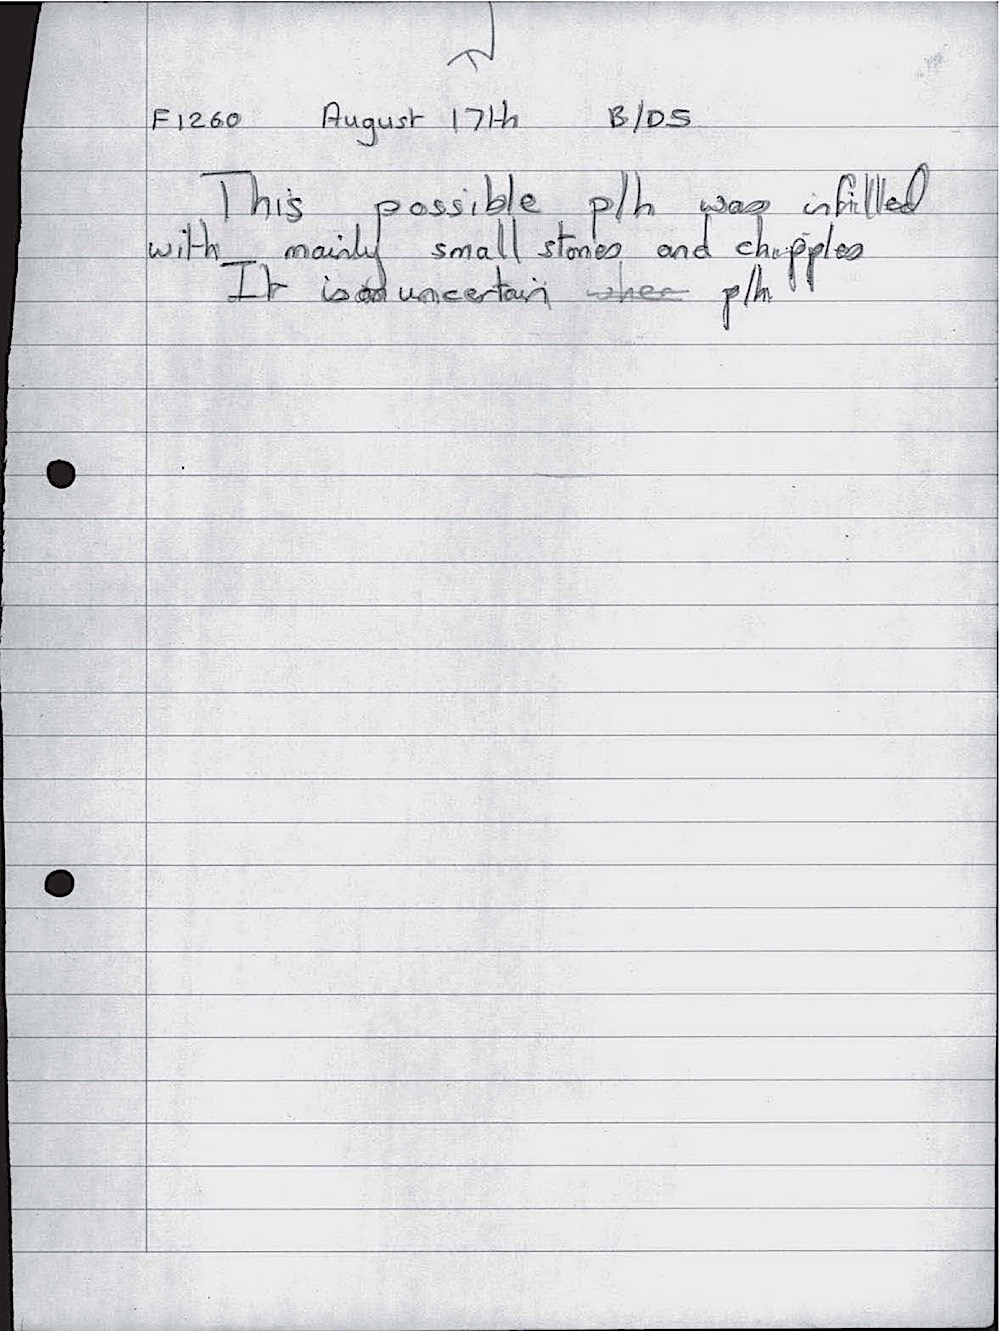 F1260 August 17th B/DS
This possible p/h was infilled
with mainly small stones and chipples
It is an uncertain p/h